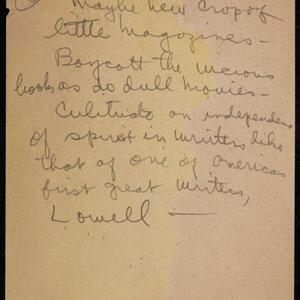 Maybe new crop of
little magazines -
Boycott the vicious
books as do dull movies -
Cultivate an independence
of spirit in writers like
that of one of Americas
first great writers,
Lowell -